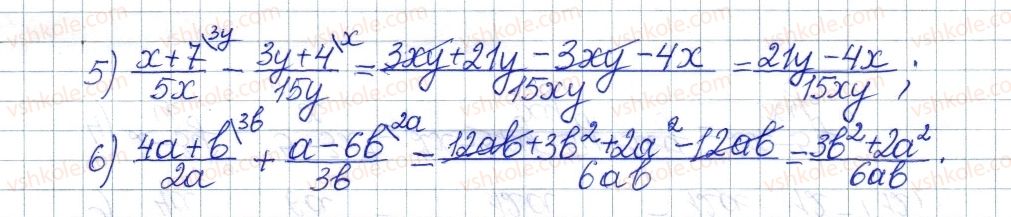 5) (x+7)/(5x) \3y − (3y+4)/(15y) \x = (3xy+21y−3xy−4x)/(15xy) = (21y−4x)/(15xy);
6) (4a+b)/(2a) \3b + (a−6b)/(3b) \2a = (12ab+3b²+2a²−12ab)/(6ab) = (3b²+2a²)/(6ab).